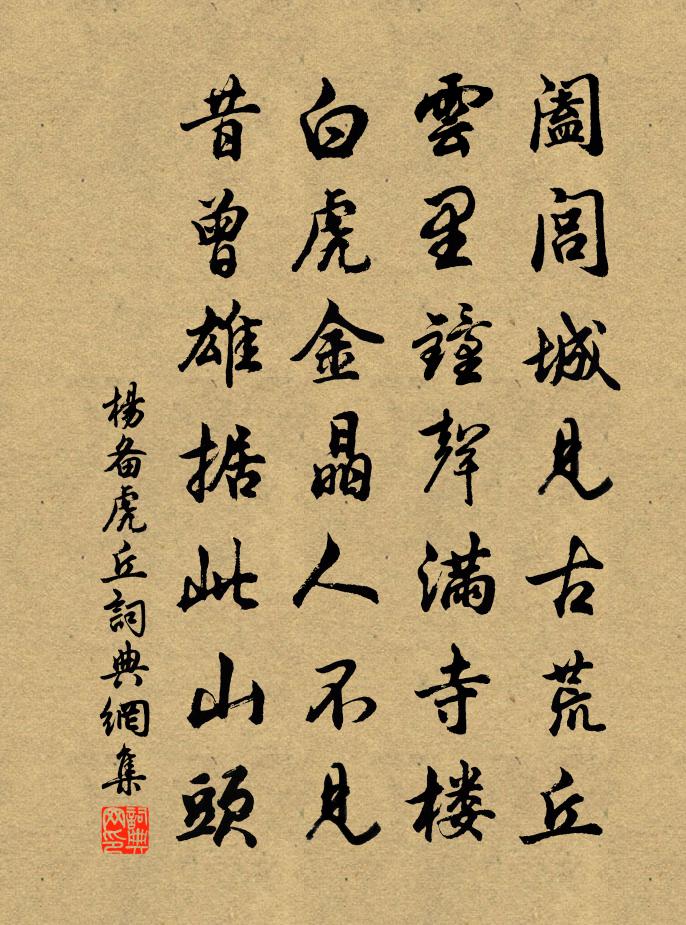 阖闾城見古荒丘
雲里鐘聲滿寺楼
白虎金晶人不見
昔曾雄据此山頭
楊备虎丘詞典網集
詞典网印